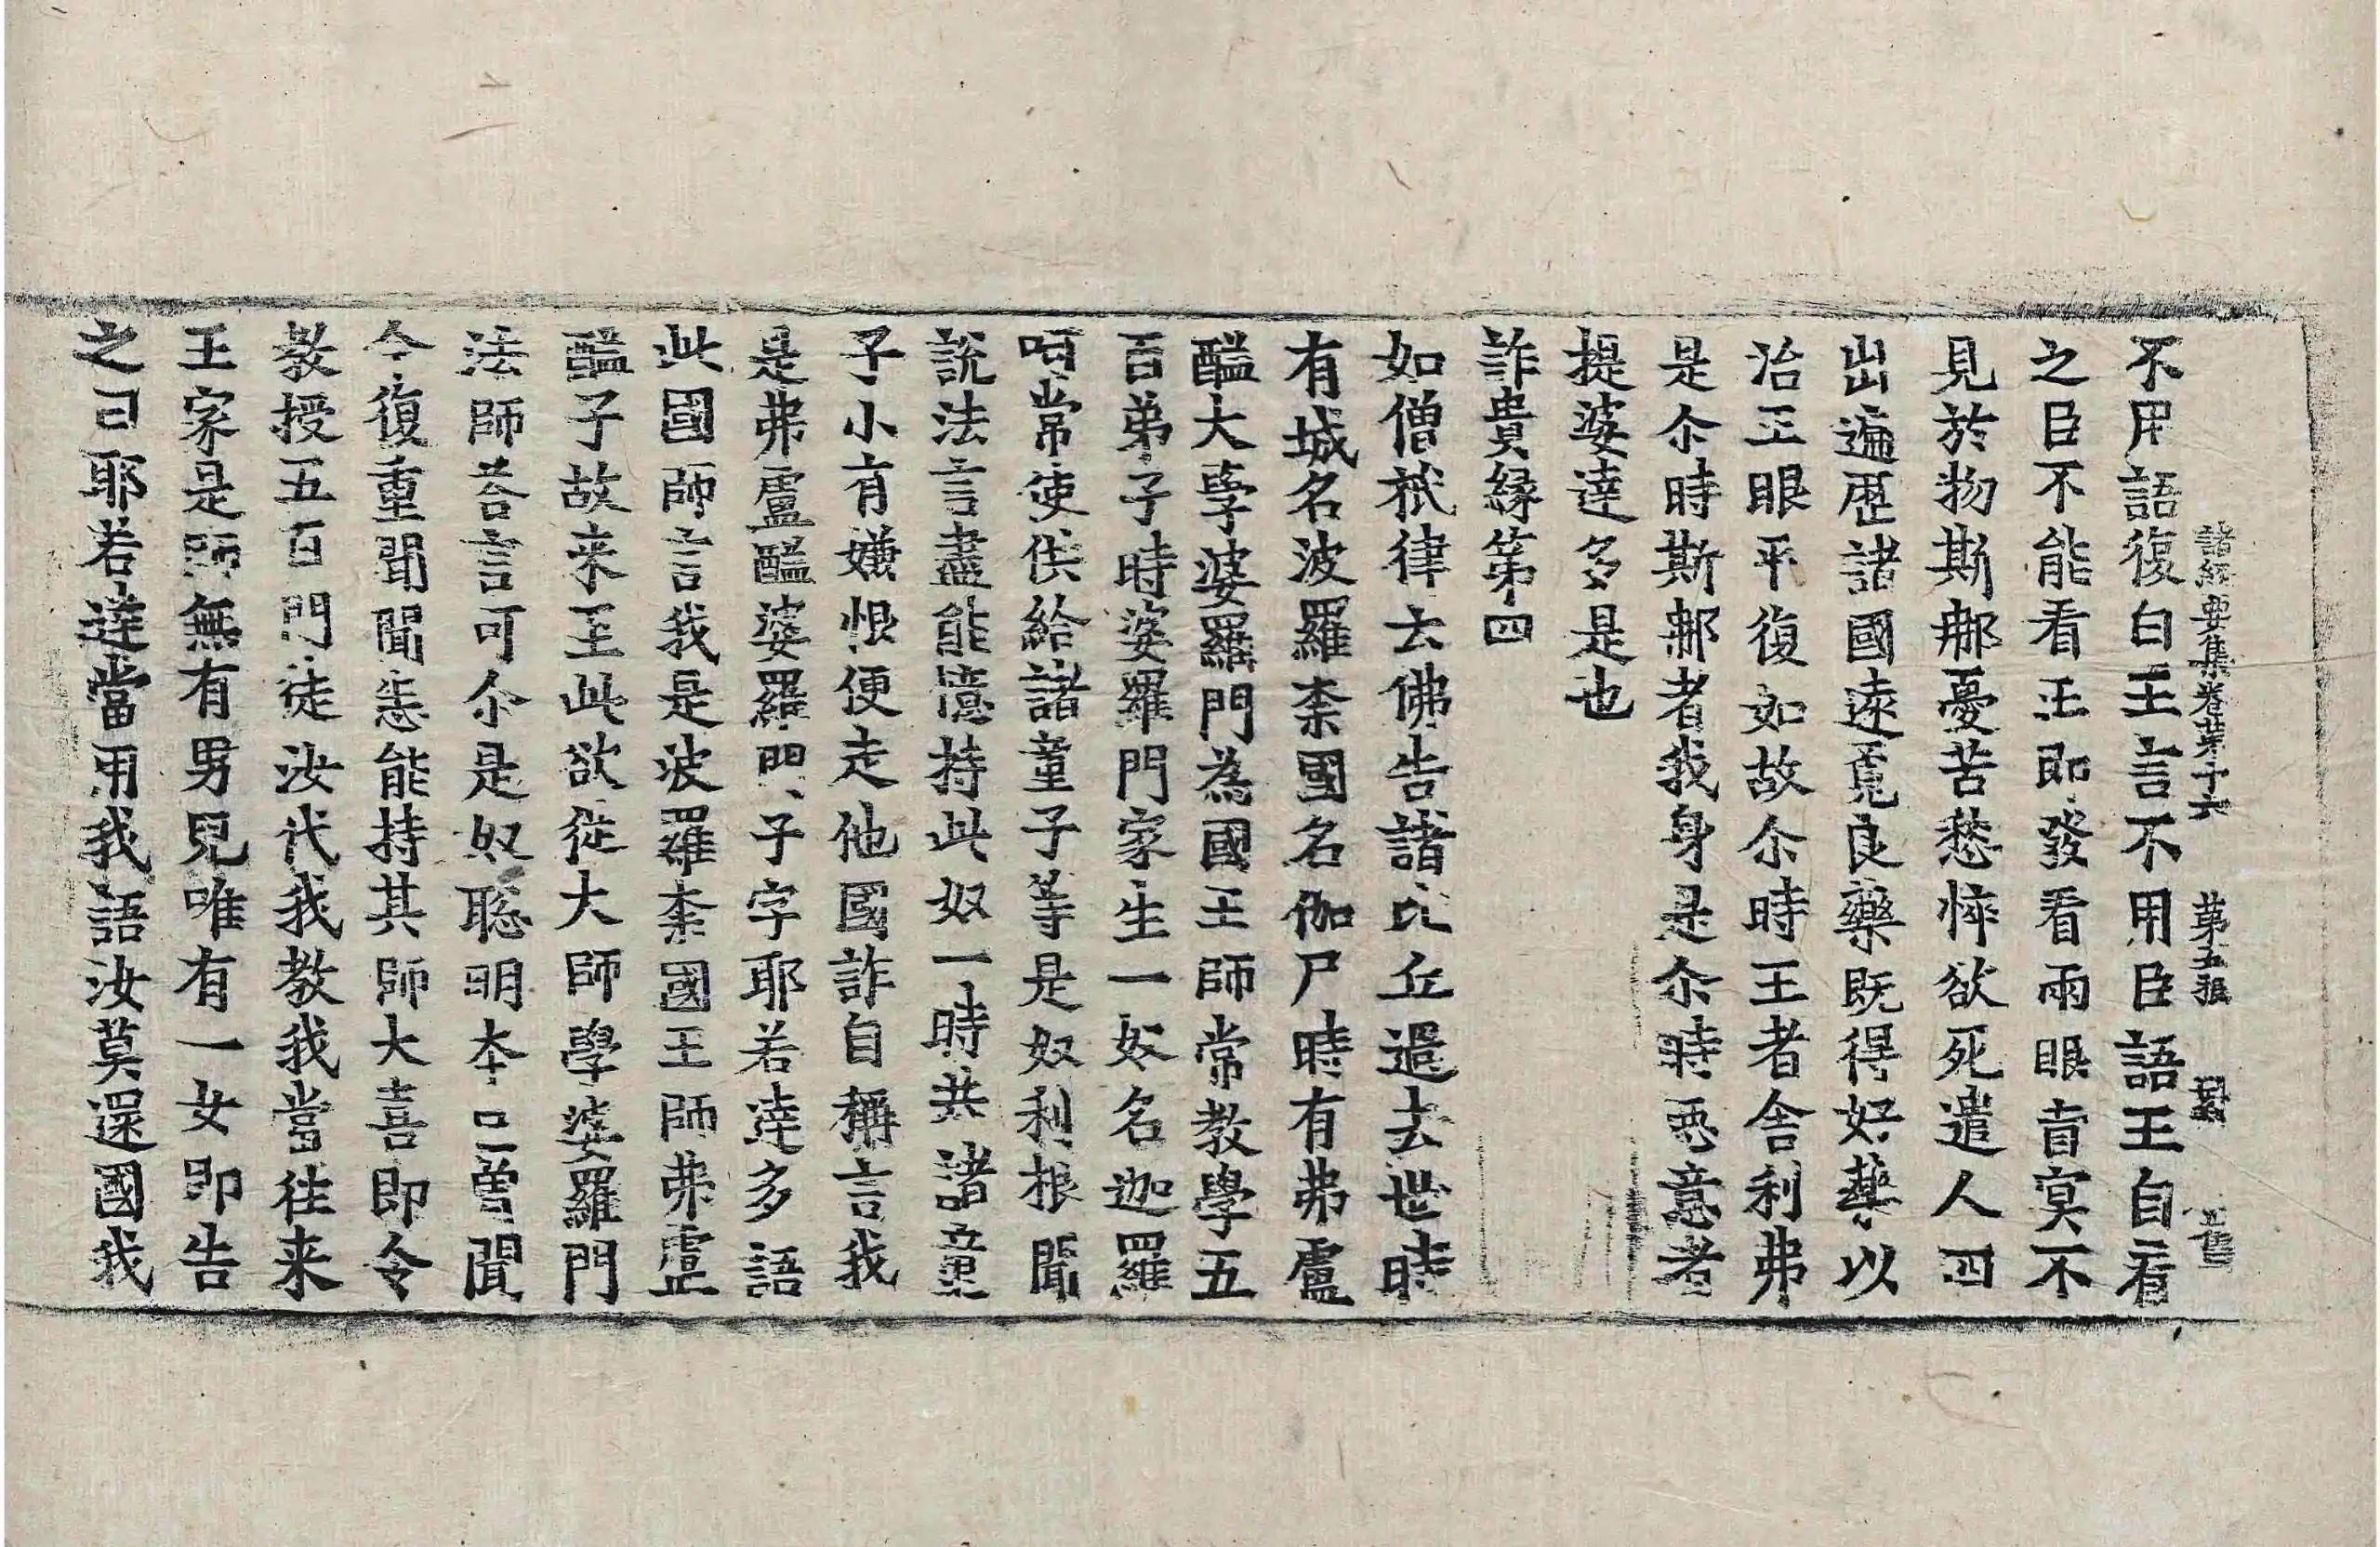 諸經要集卷苐十六 苐五張
不用語復白王言不用臣語王自看
之臣不能看王即發看兩眼盲冥不
見於物斯𨙻憂苦愁悴欲死遣人四
出遍歷諸國遠覓良藥既得好藥以
治王眼平復如故尒時王者舍利弗
是尒時斯𨙻者我身是尒時惡意者
提婆達多是也
詐貴緣第四
如僧祇律云佛告諸比丘過去世時
有城名波羅柰國名伽尸時有弗盧
醯大學婆羅門為國王師常教學五
百弟子時婆羅門家生一奴名迦羅
呵常使供給諸童子等是奴利根聞
說法言盡能憶持此奴一時共諸童
子小有嫌恨便走他國詐自稱言我
是弗盧醯婆羅門子字耶若達多語
此國師言我是波羅柰國王師弗盧
醯子故来至此欲從大師學婆羅門
法師荅言可尒是奴聡明本已曽聞
今復重聞聞悉能持其師大喜即令
教授五百門徒汝代我教我當往来
王家是師無有男兒唯有一女即告
之曰耶若達當用我語汝莫還國我